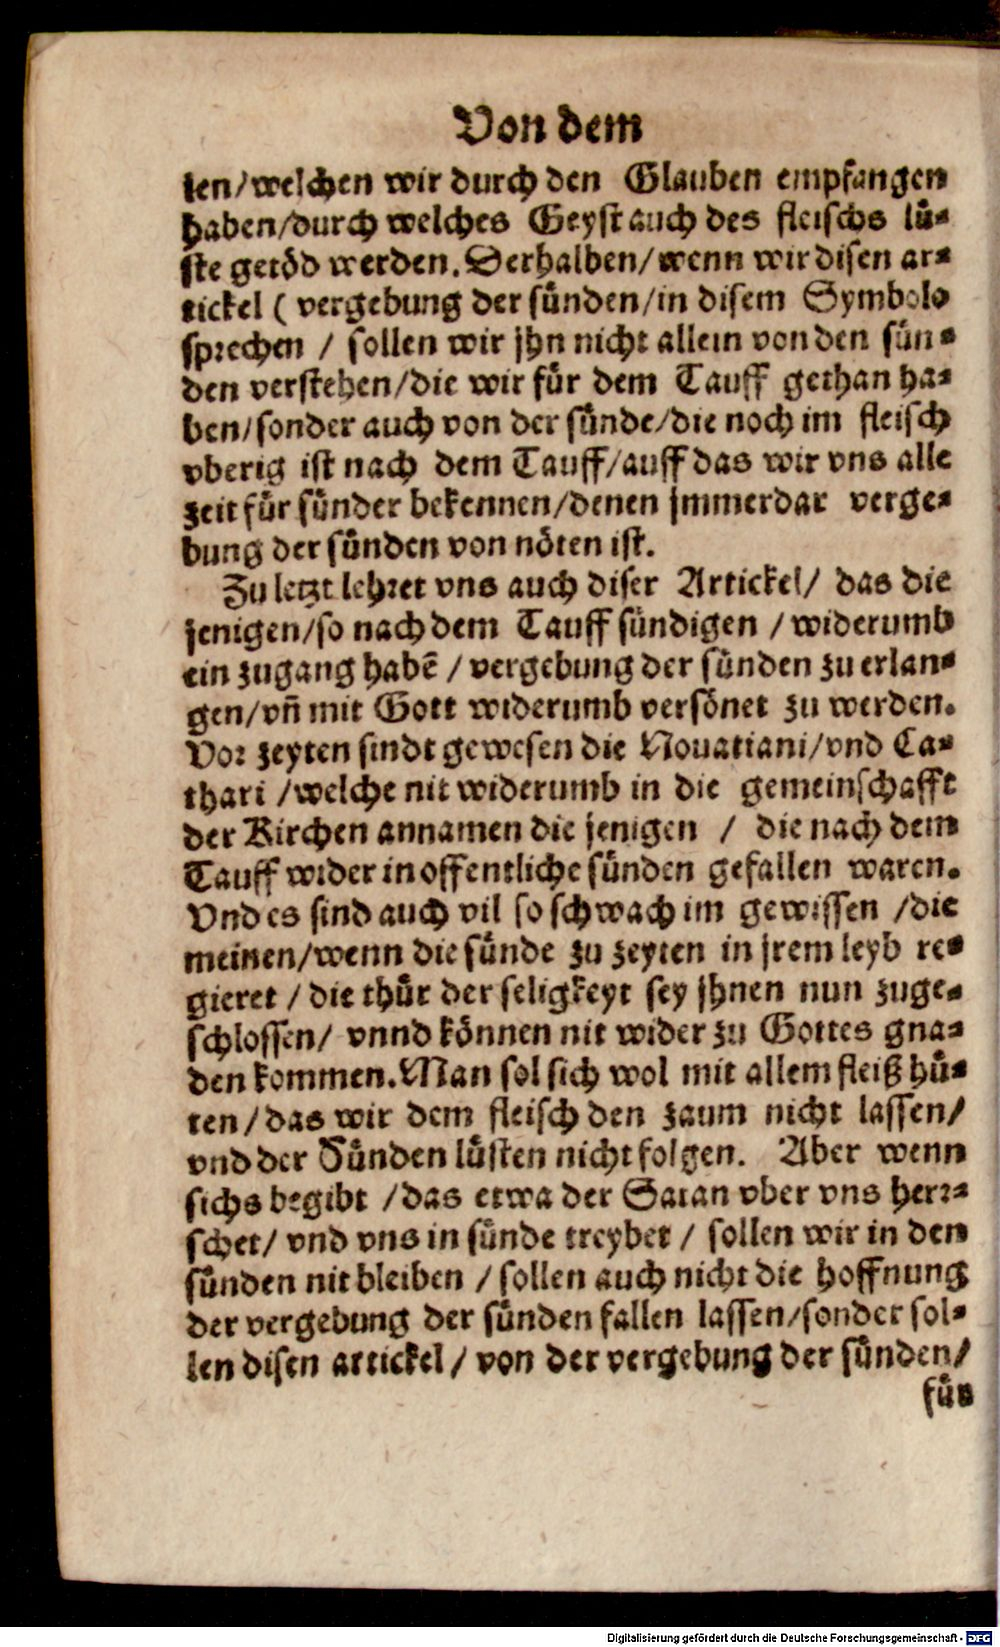 Von dem
ten/welchen wir durch den Glauben empfangen
haben/durch welches Geyst auch des fleischs lü-
ste getöd werden. Derhalben/wenn wir disen ar-
tickel ( vergebung der sünden/in disem Symbolo
sprechen / sollen wir jhn nicht allein von den sün-
den verstehen/die wir für dem Tauff gethan ha-
ben/sonder auch von der sünde/die noch im fleisch
vberig ist nach dem Tauff/auff das wir vns alle
zeit für sünder bekennen/denen jmmerdar verge-
bung der sünden von nöten ist.
Zu letzt lehret vns auch diser Artickel/ das die
jenigen/so nach dem Tauff sündigen / widerumb
ein zugang habē / vergebung der sünden zu erlan-
gen/vñ mit Gott widerumb versönet zu werden.
Vor zeyten sindt gewesen die Nouatiani/vnd Ca-
thari /welche nit widerumb in die gemeinschafft
der Kirchen annamen die jenigen / die nach dem
Tauff wider in offentliche sünden gefallen waren.
Vnd es sind auch vil so schwach im gewissen /die
meinen/wenn die sünde zu zeyten in jrem leyb re-
gieret / die thür der seligkeyt sey jhnen nun zuge-
schlossen/ vnnd können nit wider zu Gottes gna-
den kommen. Man sol sich wol mit allem fleiß hü-
ten/das wir dem fleisch den zaum nicht lassen/
vnd der Sünden lüsten nicht folgen. Aber wenn
sichs begibt /das etwa der Satan vber vns herr-
schet/ vnd vns in sünde treybet / sollen wir in den
sünden nit bleiben / sollen auch nicht die hoffnung
der vergebung der sünden fallen lassen/sonder sol-
len disen artickel / von der vergebung der sünden/
für
Digitalisierung gefördert durch die Deutsche Forschungsgemeinschaft - DFG